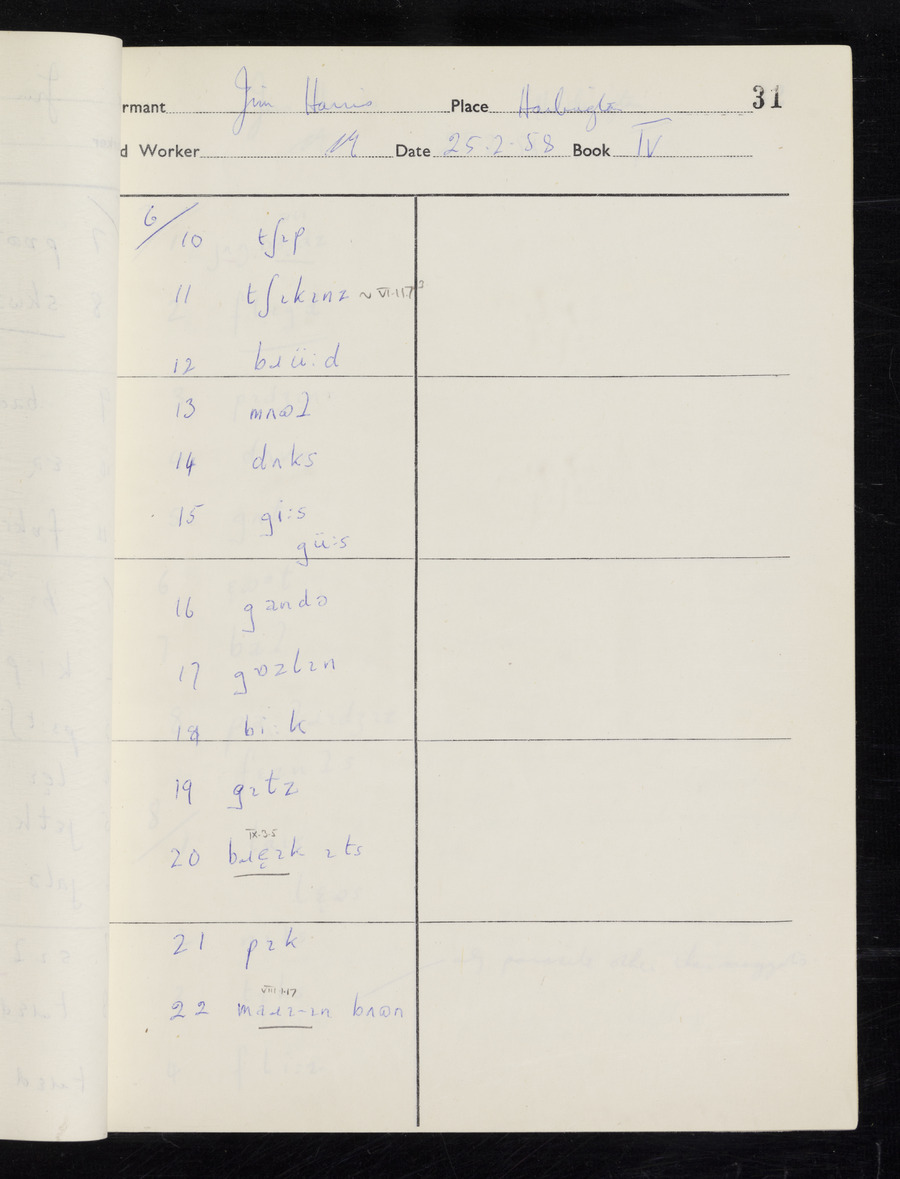 rmant Jim Harris Place Harlington 31
d Worker Date 25.2.58 Book IV
6/
10 tʃɪp
11 tʃɪkɪnz ~ VI.11.7³
12 bɹü:d
13 mʌɷɫ
14 dʌks
15 gi:s
gü:s
16 gandə
17 gɒzlɪn
18 bi:k
19 gɪtz
IX.3.5
20 bɹęɪk ɪts
21 pɪk
VIII.1.17
22 maɹɪ-ɪn bʌɷn